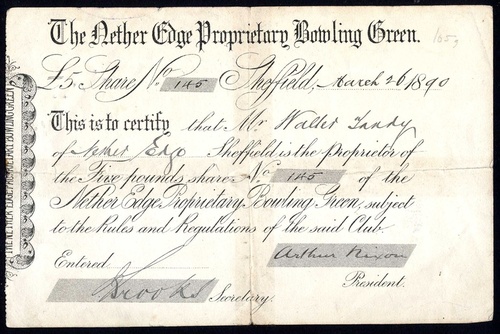 The Nether Edge Proprietary Bowling Green.
£5 Share No. 145 Sheffield, March 26 1890
This is to certify that Mr Walter Tandy
of Nether Edge Sheffield is the Proprietor of
the Five pounds share No. 145 of the
Nether Edge Proprietary Bowling Green, subject
to the Rules and Regulations of the said Club.
Entered Arthur Nixon
President.
Brooks Secretary.
THE NETHER EDGE PROPRIETARY BOWLING GREEN